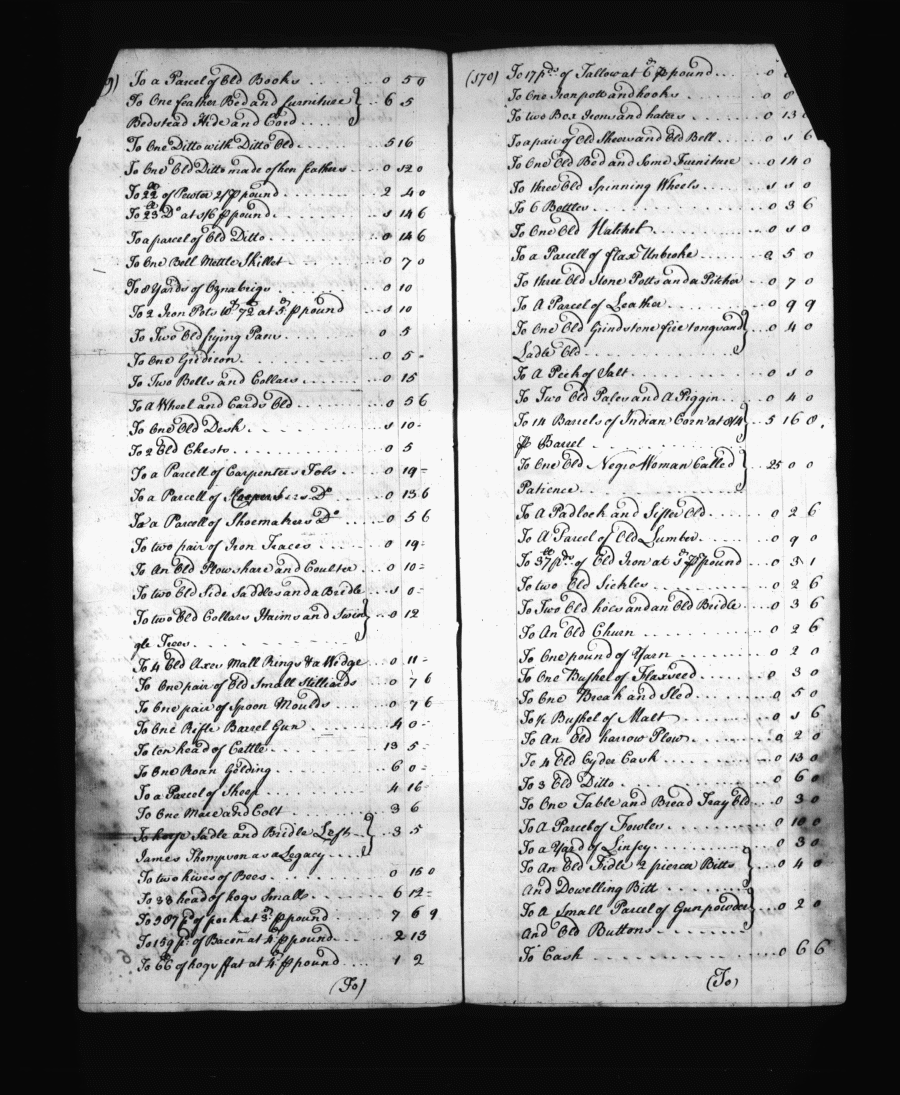 9)
To a Parcel of Old Books . . . . . . 0 5 0
To One feather Bed and furniture } 6 5
Bedstead Hide and Cord . . . .
To One Ditto with Ditto Old . . . . 5 16
To One Old Ditto made of hen feathers . . 0 12 0
To 22 lb of Pewter 2/ ⅌ pound . . . 2 4 0
To 23 lb Do at 1/6 ⅌ pound . . . 1 14 6
To a parcel of Old Ditto . . . . 0 14 6
To One Bell Mettle Skillet . . . . 0 7 0
To 8 Yards of Oznabrigs . . . . 0 10
To 2 Iron Pots wt 72 at 5d ⅌ pound 1 10
To Two Old frying Pans . . . . 0 5
To One Gridiron . . . . 0 5 -
To Two Bells and Collars . . . . 0 15
To A Wheel and Cards Old . . . . 0 5 6
To One Old Desk . . . . 1 10 -
To 2 Old Chests . . . . 0 5
To a Parcell of Carpenters Tols . . 0 19 =
To a Parcell of Coopers Do . . 0 13 6
To a Parcell of Shoemakers Do . . . 0 5 6
To two pair of Iron Traces . . . 0 19 -
To An Old Plowshare and Coulter . . . 0 10 =
To two Old Side Saddles and a Bridle . 1 0 -
To two Old Collars Haims and Swin } 0 12
gle Trees . . . .
To 4 Old Axes Mall Rings & a Wedge 0 11 -
To One pair of Old Small Stilliards 0 7 6
To One pair of Spoon Moulds . . . 0 7 6
To One Rifle Barrel Gun . . . . 4 0 -
To ten head of Cattle . . . . 13 5 -
To One Roan Gelding . . . . 6 0 =
To a Parcel of Sheep . . . . 4 16 -
To One Mare and Colt 3 6
To horse Sadle and Bridle Left } 3 5
James Thompson as a Legacy . . . .
To two hives of Bees . . . . 0 15 0
To 33 head of hogs Small . . . . 6 12 =
To 587 pd of pork at 3d ⅌ pound . . . 7 6 9
To 159 pd of Bacon at 4d ⅌ pound . . . 2 13
To 66 lb of hogs ffat at 4d ⅌ pound . . . 1 2
(To)
(170)
To 17 pds of Tallow at 6d ⅌ pound . . . 0
To One Iron pott and hooks . . . . 0 8
To two Box Irons and heters . . . . 0 13
To a pair of Old Sheers and Old Bell . . 0 1 6
To One Old Bed and Some Furniture 0 14 0
To three Old Spinning Wheels . . . 1 1 0
To 6 Bottles . . . . 0 3 6
To One Old Hatchet . . . . 0 1 0
To a Parcell of flax Unbroke . . . 2 5 0
To three Old Stone Potts and a Pitcher 0 7 0
To A Parcel of Leather . . . . 0 9 9
To One Old Grindstone fire tongs and } 0 4 0
Ladle Old . . . .
To A Peck of Salt . . . . 0 1 0
To Two Old Pales and A Piggin . . . 0 4 0
To 14 Barrels of Indian Corn at 8/4 } 5 16 8
⅌ Barrel . . . .
To One Old Negro Woman Called } 25 0 0
Patience . . . .
To A Padlock and Sifter Old . . . . 0 2 6
To A Parcel of Old Lumber . . . . 0 9 0
To 37 pds of Old Iron at 1d ⅌ pound 0 3 1
To two Old Sickles . . . . 0 2 6
To Two Old hoes and an Old Bridle . . 0 3 6
To An Old Churn . . . . 0 2 6
To One pound of Yarn . . . . 0 2 0
To One Bushel of Flaxseed . . . . 0 3 0
To One Break and Sled . . . . 0 5 0
To ½ Bushel of Malt . . . . 0 1 6
To An Old harrow Plow . . . . 0 2 0
To 4 Old Cyder Cask . . . . 0 13 0
To 3 Old Ditto . . . . 0 6 0
To One Table and Bread Tray Old . . 0 3 0
To A Parcel of Fowles . . . . 0 10 0
To a Yard of Linsey . . . . 0 3 0
To An Old Fidle 2 pierca Bitts } 0 4 0
And Dowelling Bitt . . . .
To A Small Parcel of Gunpowder } 0 2 0
And Old Buttons . . . .
To Cash . . . . 0 6 6
(To)